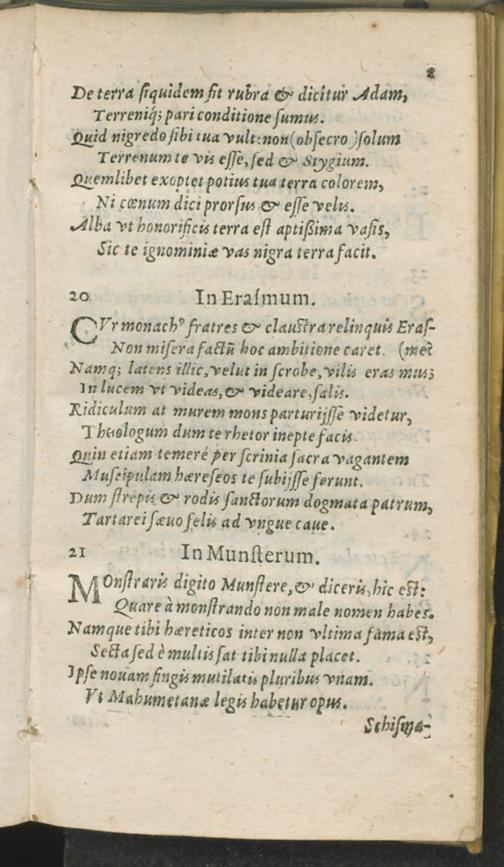 8
De terra siquidem fit rubra & dicitur Adam,
Terreniq́; pari conditione sumus.
Quid nigredo sibi tua vult: non (obsecro) solum
Terrenum te vis esse, sed & Stygium.
Quemlibet exoptet potius tua terra colorem,
Ni cœnum dici prorsus & esse velis.
Alba vt honorificis terra est aptißima vasis,
Sic te ignominiæ vas nigra terra facit.
20 In Erasmum.
CVr monach⁹ fratres & claustra relinquis Eras-
Non misera factũ hoc ambitione caret. (me?
Namq; latens illic, velut in scrobe, vilis eras mus;
In lucem vt videas, & videare, salis.
Ridiculum at murem mons parturijsse videtur,
Theologum dum te rhetor inepte facis.
Quin etiam temerè per scrinia sacra vagantem
Muscipulam hæreseos te subijsse ferunt.
Dum strepis & rodis sanctorum dogmata patrum,
Tartarei sæuo felis ad vngue caue.
21 In Munsterum.
MOnstraris digito Munstere, & diceris, hic est:
Quare à monstrando non male nomen habes.
Namque tibi hæreticos inter non vltima fama est,
Secta sed è multis sat tibi nulla placet.
Ipse nouam fingis mutilatis pluribus vnam.
Vt Mahumetanæ legis habetur opus.
Schisma-